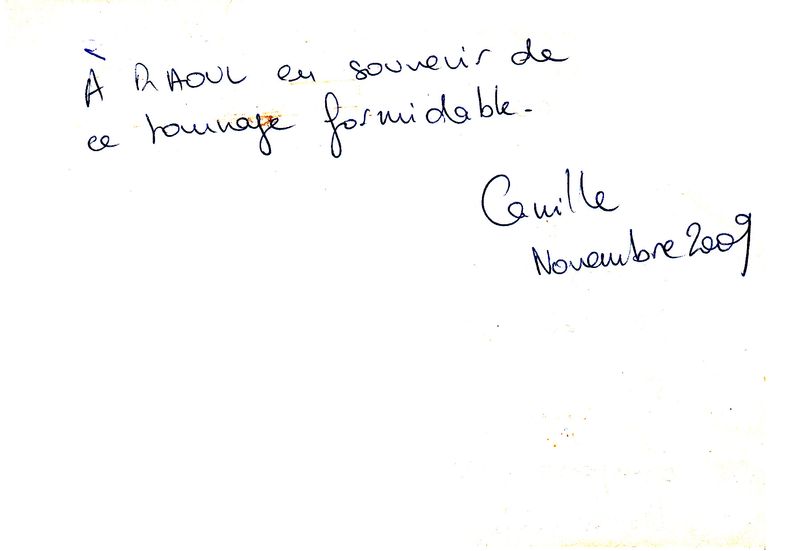 À RAOUL en souvenir de
ce hommage formidable.
Camille
Novembre 2009